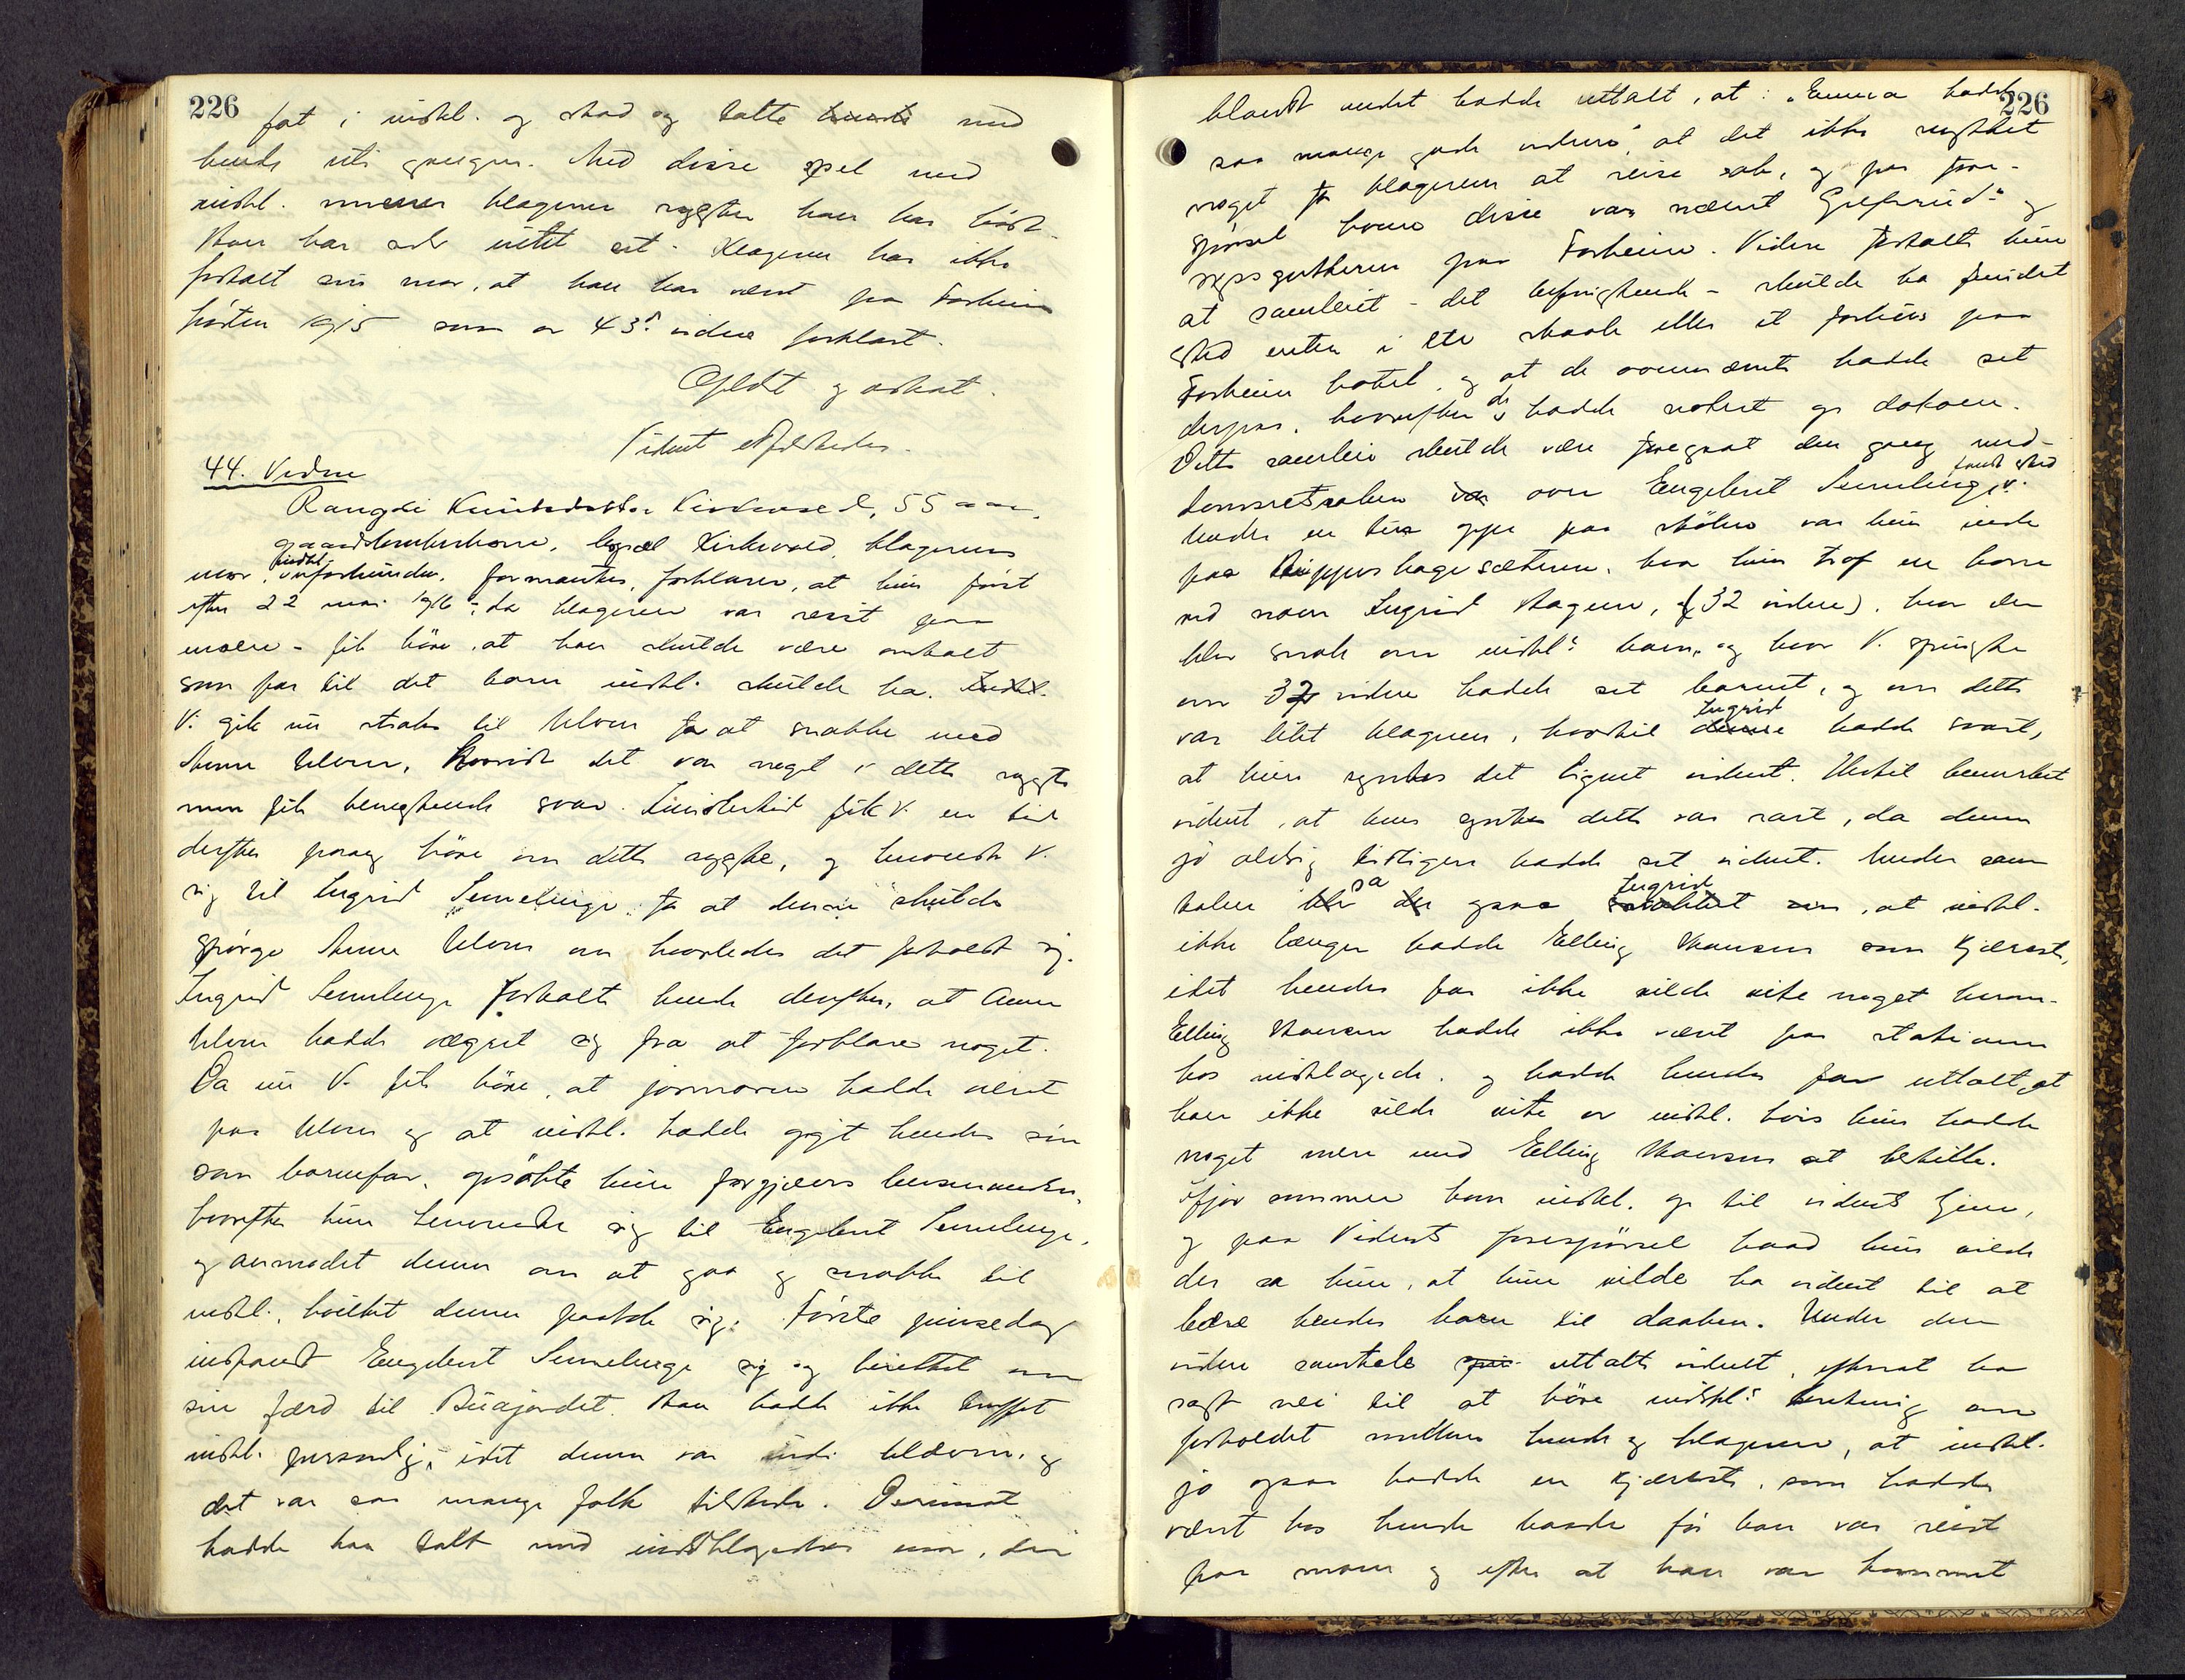 226
fat i indkl. og stod og talte med
hende uti gangen. Med disse spel med
indkl. mener klageren rygter han har hørt.
Han har selv intet set. Klageren har ikke
fortalt sin mor, at han har været paa Forheim
høsten 1915 som av 43de vidne forklart.
Oplæst og vedtat.
Vidnet fratraadte.
44. Vidne
Rangdi Knutsdatter Kirkevold, 55 aar,
gaardbrukerkone, bopæl Kirkevold, klagerens
mor, indkl. uforbunden, formantes, forklarer, at hun først
efter 22 mai 1916 - da klageren var reist paa
moen - fik høre, at han skulde være omtalt
som far til det barn indkl. skulde ha.
V. gik nu straks til Ulven for at snakke med
Anne Ulven, hvorvidt det var noget i dette rygte
men fik benegtende svar. Imidlertid fik V. en tid
derefter paany høre om dette rygte, og henvendte V.
sig til Ingrid Semelenge for at denne skulde
spørge Anne Ulven om hvorledes det forholdt sig.
Ingrid Semelenge fortalte hende derefter, at Anne
Ulven hadde vægret sig fra at forklare noget.
Da nu V. fik høre, at jormoren hadde været
paa Ulven og at indkl. hadde opgit hendes søn
som barnefar, opsøkte hun forgjæves lensmanden,
hvorefter hun henvendte sig til Engebret Semelenge,
og anmodet denne om at gaa og snakke til
indkl., hvilket denne paatok sig. Første pinsedag
indfandt Engebret Semelenge sig og berettet om
sin færd til Buajordet. Han hadde ikke truffet
indkl. personlig, idet denne var inde i kleven, og
det var saa mange folk tilstede. Derimot
hadde han talt med indklagedes mor, der
226
blandt andet hadde uttalt, at: "Emma hadde
saa mange gode vidner", at det ikke nyttet
noget for klageren at reise sak, og paa fore-
spørsel hvem disse var nævnt Gulsrud og
sypsgutterne paa Forheim. Videre fortalte hun
at samleiet - det befrugtende - skulde ha fundet
sted enten i ett skaale eller et fjøshus paa
Forheim hotel, og at de ovennævnte hadde set
derpaa, hvorefter de hadde notert op datoen.
Dette samleie skulde være foregaat den gang med-
domsretsaken over Engebret Semelenge fandt sted. V.
hadde en tur oppe paa støлен var hun inde
paa Ruppershagesæteren, hvor hun traf en kone
ved navn Ingrid Hagene, (32 vidne), hvor der
blev snak om indkl.s barn, og hvor V. spurgte
om 32 vidne hadde set barnet, og om dette
var likt klageren, hvortil Ingrid hadde svart,
at hun syntes det lignet vidnet. Hertil bemerket
vidnet, at hun syntes dette var rart, da denne
jo aldrig tidligere hadde set vidnet. Under sam
talen sa ogsaa Ingrid, at indkl.
ikke længer hadde Elling Hansen som kjæreste,
idet hendes far ikke vilde vite noget herom.
Elling Hansen hadde ikke været paa stationen
hos indklagede, og hadde hendes far uttalt, at
han ikke vilde vite av indkl. hvis hun hadde
noget mere med Elling Hansen at bestille.
Ifjor sommer kom indkl. op til vidnets hjem,
og paa Vidnets forespørsel hvad hun vilde
der sa hun, at hun vilde ha vidnet til at
bære hendes barn til daaben. Under den
videre samtale uttalte vidnet, efterat ha
sagt nei til at høre indkl.s beretning om
forholdet mellem hende og klageren, at indkl.
jo ogsaa hadde en kjæreste, som hadde
været hos hende baade før han var reist
paa moen og efter at han var kommet